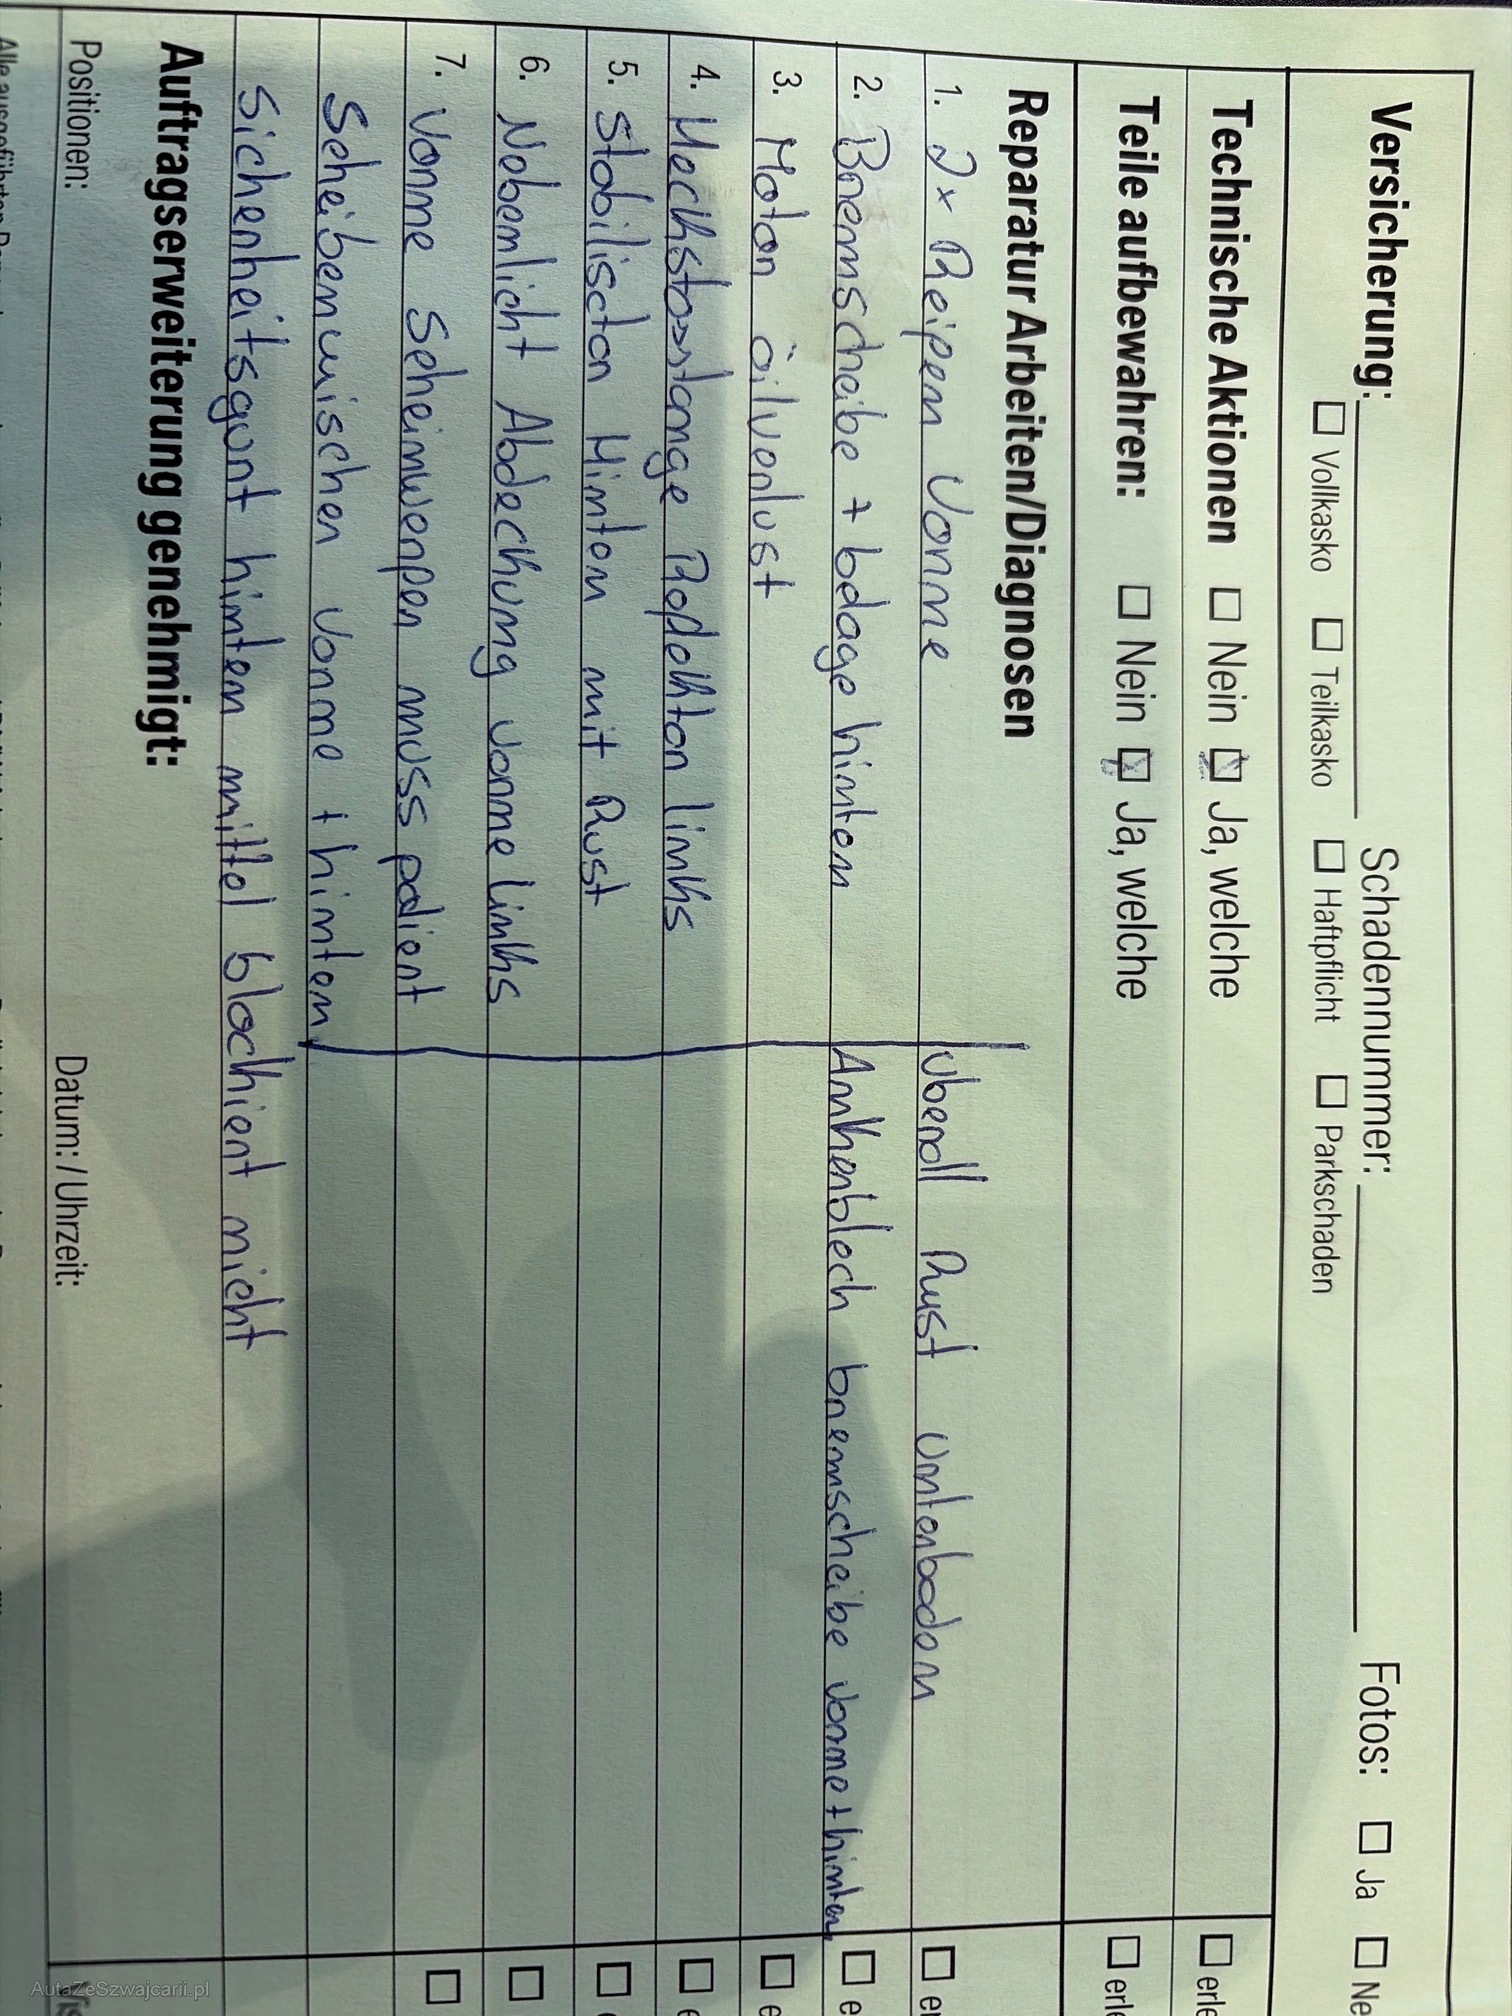 Versicherung: Schadennummer: Fotos: ☐ Ja ☐ Ne
☐ Vollkasko ☐ Teilkasko ☐ Haftpflicht ☐ Parkschaden
Technische Aktionen ☐ Nein ☒ Ja, welche ☐ erle
Teile aufbewahren: ☐ Nein ☒ Ja, welche ☐ erle
Reparatur Arbeiten/Diagnosen
1. 2x Reipem Vorne überall Rust Untenboden ☐ er
2. Bremscheibe + bdage hinten Ankenblech bremscheibe vorne + hinten ☐ e
3. Moton öilverlust ☐ e
4. Heckstosstange Ropdekton links ☐ e
5. Stabiliscton Hinten mit Rust ☐
6. Nebenlicht Abdeckung vorne links ☐
7. Vorne Scheinwerpen muss polient ☐
Scheibenwischer Vorne + hinten
Sicherheitsgurt hinten mittel blockiert nicht
Auftragserweiterung genehmigt:
Positionen: Datum: / Uhrzeit: Vis
AutaZeSzwajcarii.pl